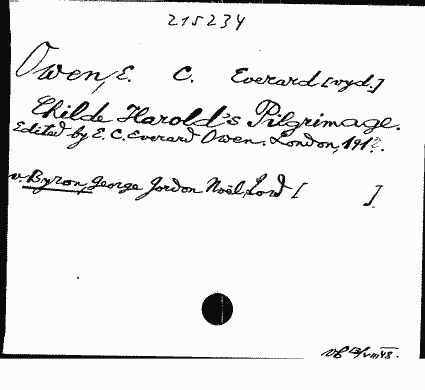 215234
Owen, E. C. Everard [vyd.]
Childe Harold's Pilgrimage.
Edited by E. C. Everard Owen. London, 191?.
v. Byron, George Gordon Noël, Lord [ ]